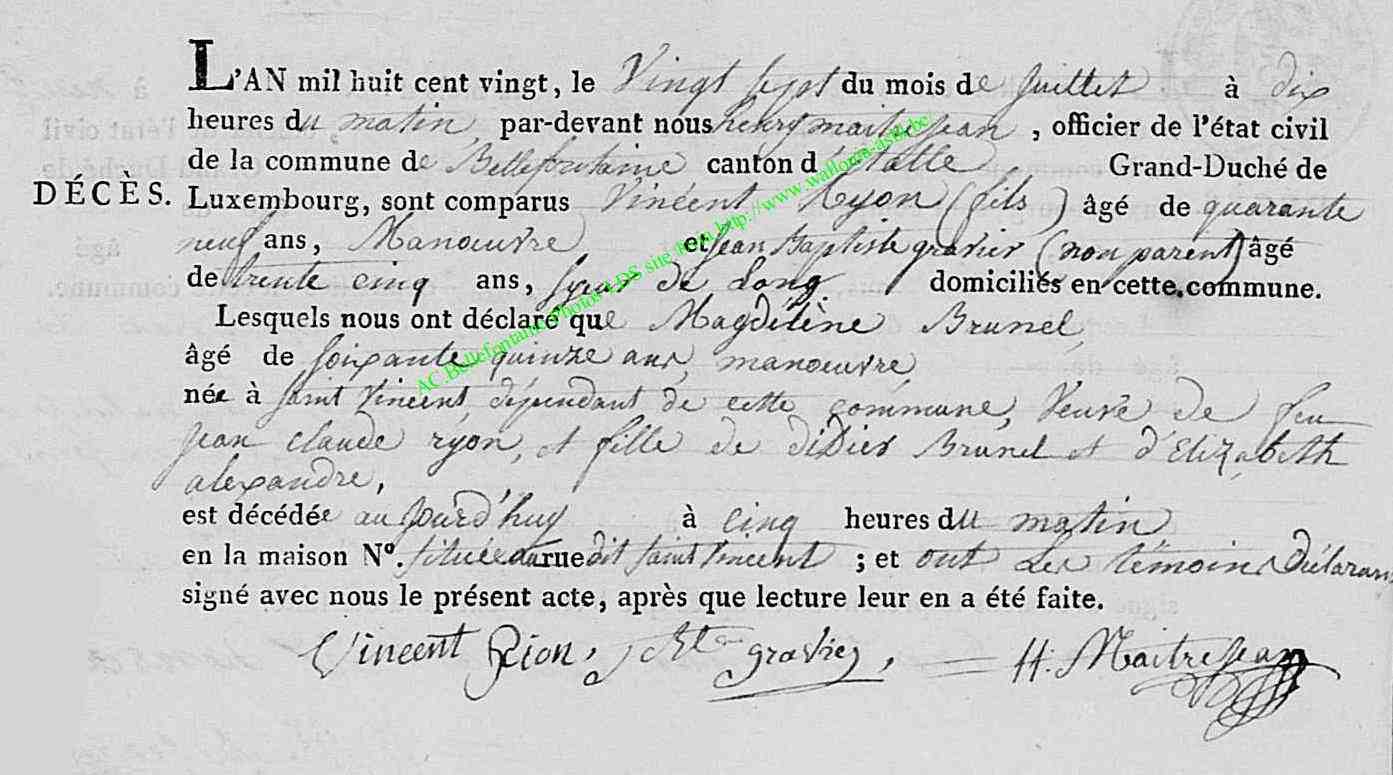 L'AN mil huit cent vingt, le Vingt sept du mois de juillet à dix
heures du matin, par-devant nous henry maitrejean, officier de l'état civil
de la commune de Bellefontaine canton d'étalle Grand-Duché de
DÉCÈS. Luxembourg, sont comparus Vincent Ryon (fils) âgé de quarante
neuf ans, Manœuvre et Jean Baptiste gravier (non parent) âgé
de trente cinq ans, de long domiciliés en cette commune.
Lesquels nous ont déclaré que Magdélène Brunel,
âgé de soixante quinze ans, manœuvre,
née à saint Vincent, dépendant de cette commune, Veuve de feu
jean claude ryon, et fille de didier Brunel et d'Elizabeth
alexandre,
est décédée aujourd'huy à cinq heures du matin
en la maison N°. située rue dit saint Vincent ; et ont les témoins déclarans
signé avec nous le présent acte, après que lecture leur en a été faite.
Vincent Rion, gravier, H. Maitrejean
AC Bellefontaine Photos LDS site from http://www.wallonia-asbl.be/